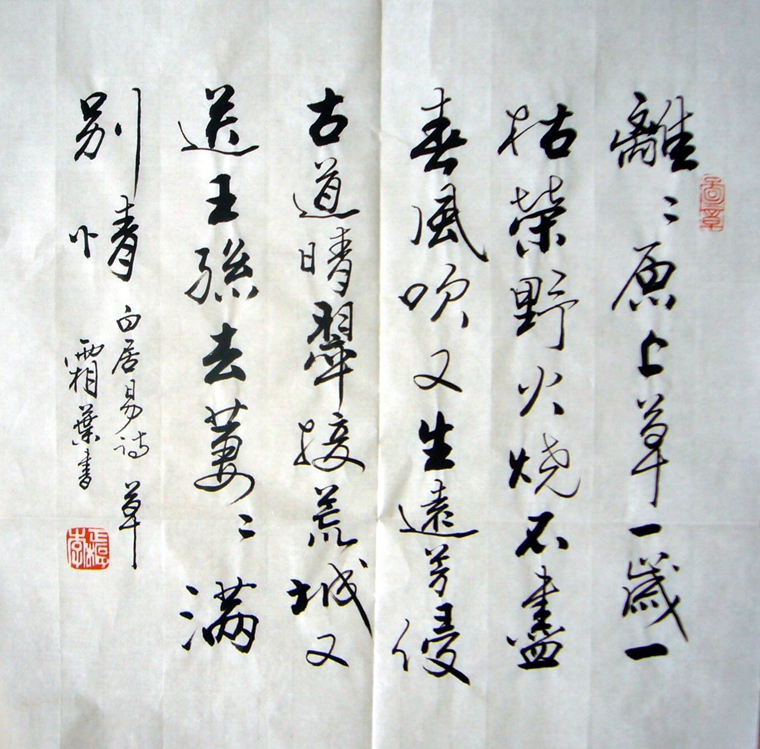 離〻原上草一歲一
枯榮野火燒不盡
春風吹又生遠芳侵
古道晴翠接荒城又
送王孫去萋〻滿
別情
白居易詩 草
霜葉書